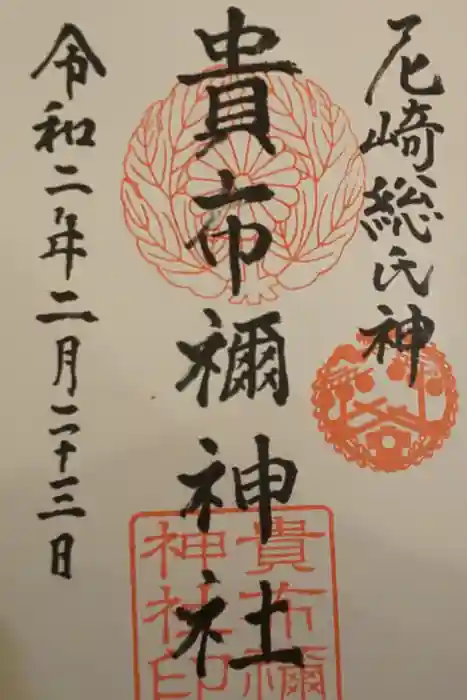 尼崎総氏神
貴布禰神社
令和二年二月二十三日
貴布禰
神社印